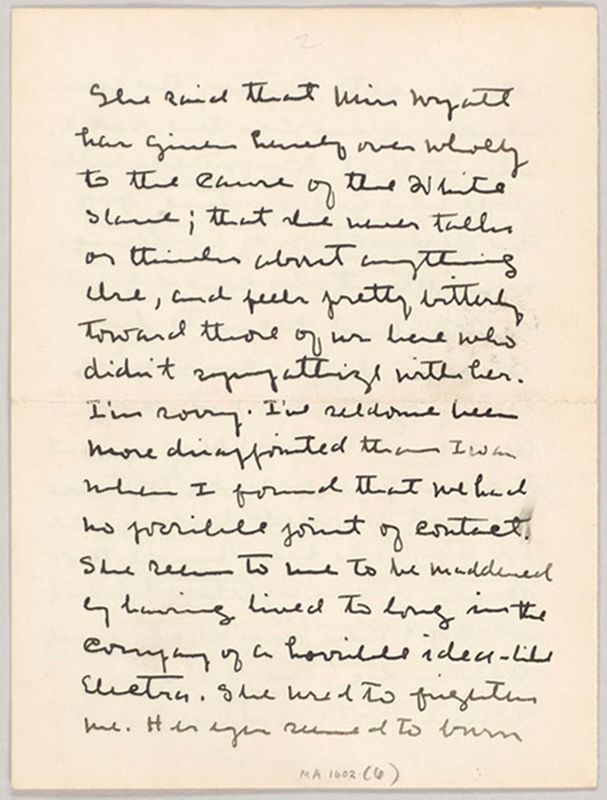 2
She said that Miss Wyatt
has given herself over wholly
to the cause of the White
Slave; that she never talks
or thinks about anything
else, and feels pretty bitterly
toward those of us here who
didn't sympathize with her.
I'm sorry. I've seldom been
more disappointed than I was
when I found that we had
no possible point of contact.
She seems to me to be maddened
by having lived to long in the
company of a horrible idea - like
Electra. She used to frighten
me. Her eyes seemed to burn
MA 1602 (6)